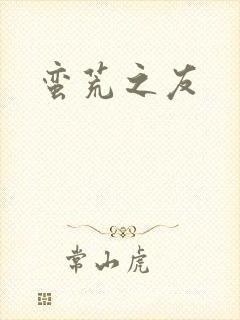 蛮荒之友
常山虎